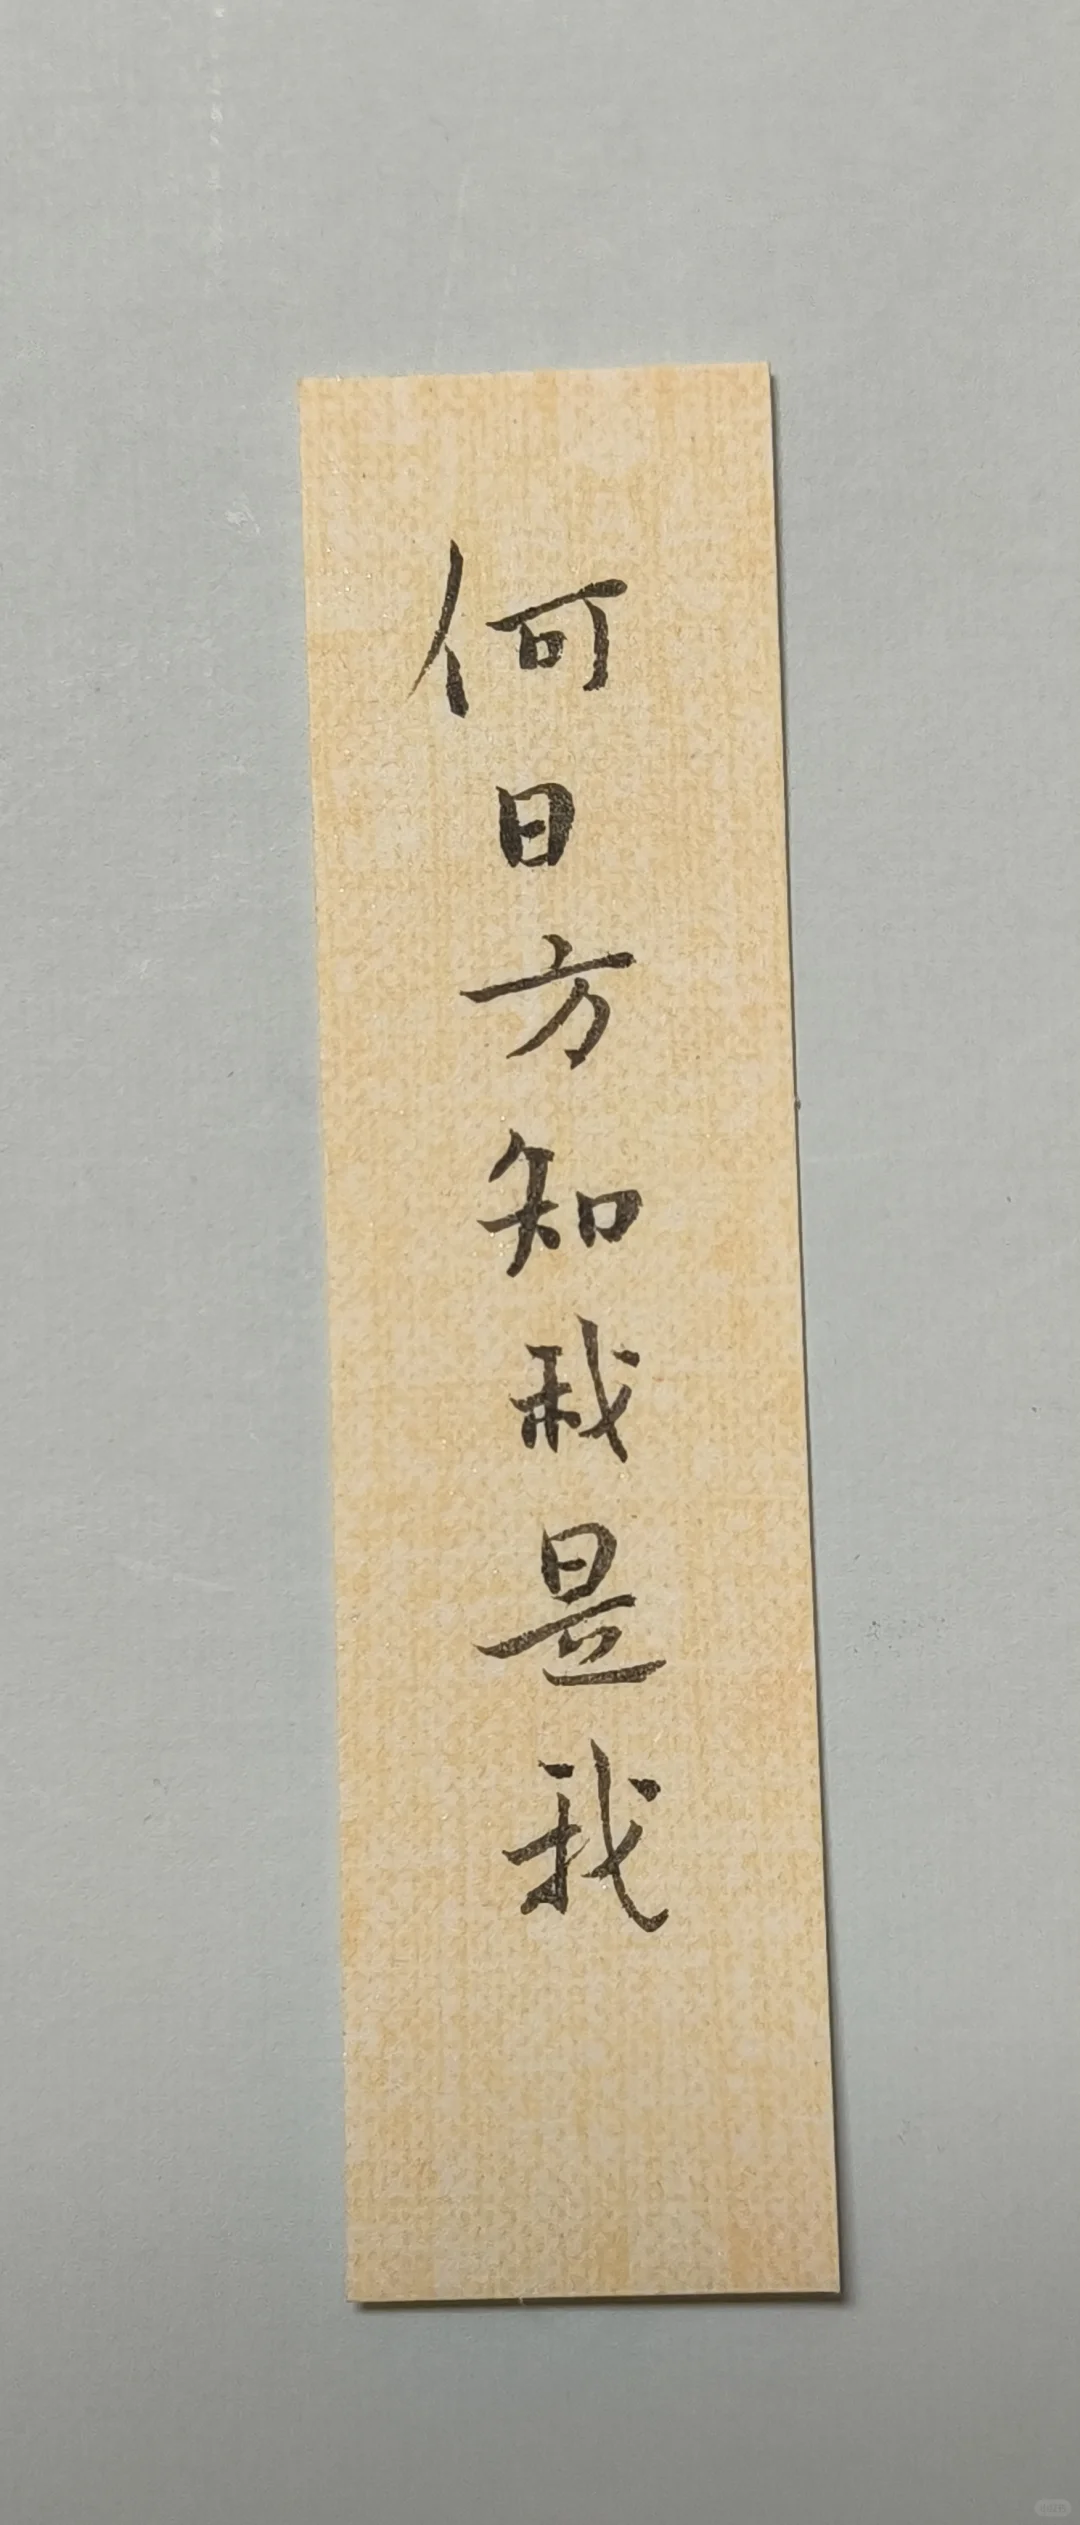 何日方知我是我